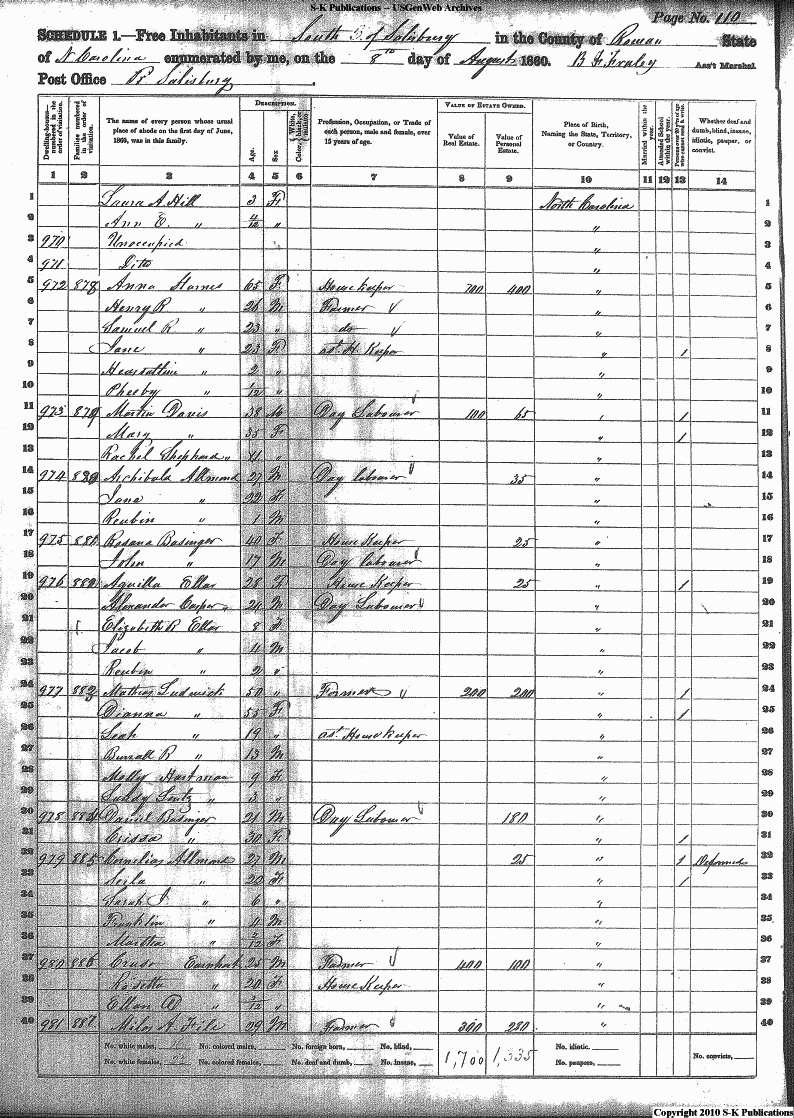 S-K Publications -- USGenWeb Archives
Page No. 110
SCHEDULE 1.—Free Inhabitants in South S. of Salisbury in the County of Rowan State
of N Carolina enumerated by me, on the 8th day of August 1860. B F Fraley Ass't Marshal.
Post Office Salisbury
DESCRIPTION. VALUE OF ESTATE OWNED.
Dwelling-house—numbered in the order of visitation. Families numbered in the order of visitation. The name of every person whose usual place of abode on the first day of June, 1860, was in this family. Age. Sex Color, White, black, or mulatto Profession, Occupation, or Trade of each person, male and female, over 15 years of age. Value of Real Estate. Value of Personal Estate. Place of Birth, Naming the State, Territory, or Country. Married within the year. Attended School within the year. Persons over 20 y'rs of age who cannot read & write. Whether deaf and dumb, blind, insane, idiotic, pauper, or convict.
1 2 3 4 5 6 7 8 9 10 11 12 13 14
1 Laura A. Hill 3 F North Carolina 1
2 Ann E. " 4/12 " " 2
3 970 Unoccupied " 3
4 971 Ditto " 4
5 972 878 Anna Starnes 65 F House Keeper 700 400 " 5
6 Henry R " 26 M Farmer " 6
7 Samuel R " 23 " do " 7
8 Jane " 23 F ast. H. Keeper " 1 8
9 " 2 " " 9
10 Pheeby " /12 " " 10
11 973 879 Martin Davis 38 M Day Labourer 100 65 " 1 11
12 Mary " 35 F " 1 12
13 Rachel Shepherd " 11 " " 13
14 974 880 Archibald Allmond 27 M Day labourer 35 " 14
15 Jane " 22 F " 15
16 Reubin " 1 M " 16
17 975 881 Rosana Basinger 40 F House Keeper 25 " 17
18 John " 17 M Day labourer " 18
19 976 882 Aquilla Ellar 28 F House Keeper 25 " 1 19
20 Alexander Casper 24 M Day Labourer " 20
21 Elizabeth R Ellar 8 F " 21
22 Jacob " 4 M " 22
23 Reubin " 2 " " 23
24 977 883 Mathias Ludwick 50 " Farmer 200 200 " 1 24
25 Dianna " 55 F " 1 25
26 Leah " 19 " ast. House keeper " 26
27 R " 13 M " 27
28 Molly Hartman 9 F " 28
29 " 3 " " 29
30 978 884 Daniel Basinger 21 M Day Labourer 180 " 30
31 Crissa " 30 F " 1 31
32 979 885 Cornelius Allmond 27 M 25 " 1 Deformed 32
33 Seila " 20 F " 1 33
34 Sarah J " 6 " " 34
35 Franklin " 4 M " 35
36 Martha " 2/12 F " 36
37 980 886 Earnhart 25 M Farmer 400 100 " 37
38 Rosetta " 20 F House Keeper " 38
39 Ellan " /12 " " 39
40 981 887 Milos A. File 29 M Farmer 300 280 " 40
No. white males, No. colored males, No. foreign born, No. blind, No. idiotic. No. convicts,
No. white females, 22 No. colored females, No. deaf and dumb, No. insane, 1,700 1,335 No. paupers,
Copyright 2010 S-K Publications